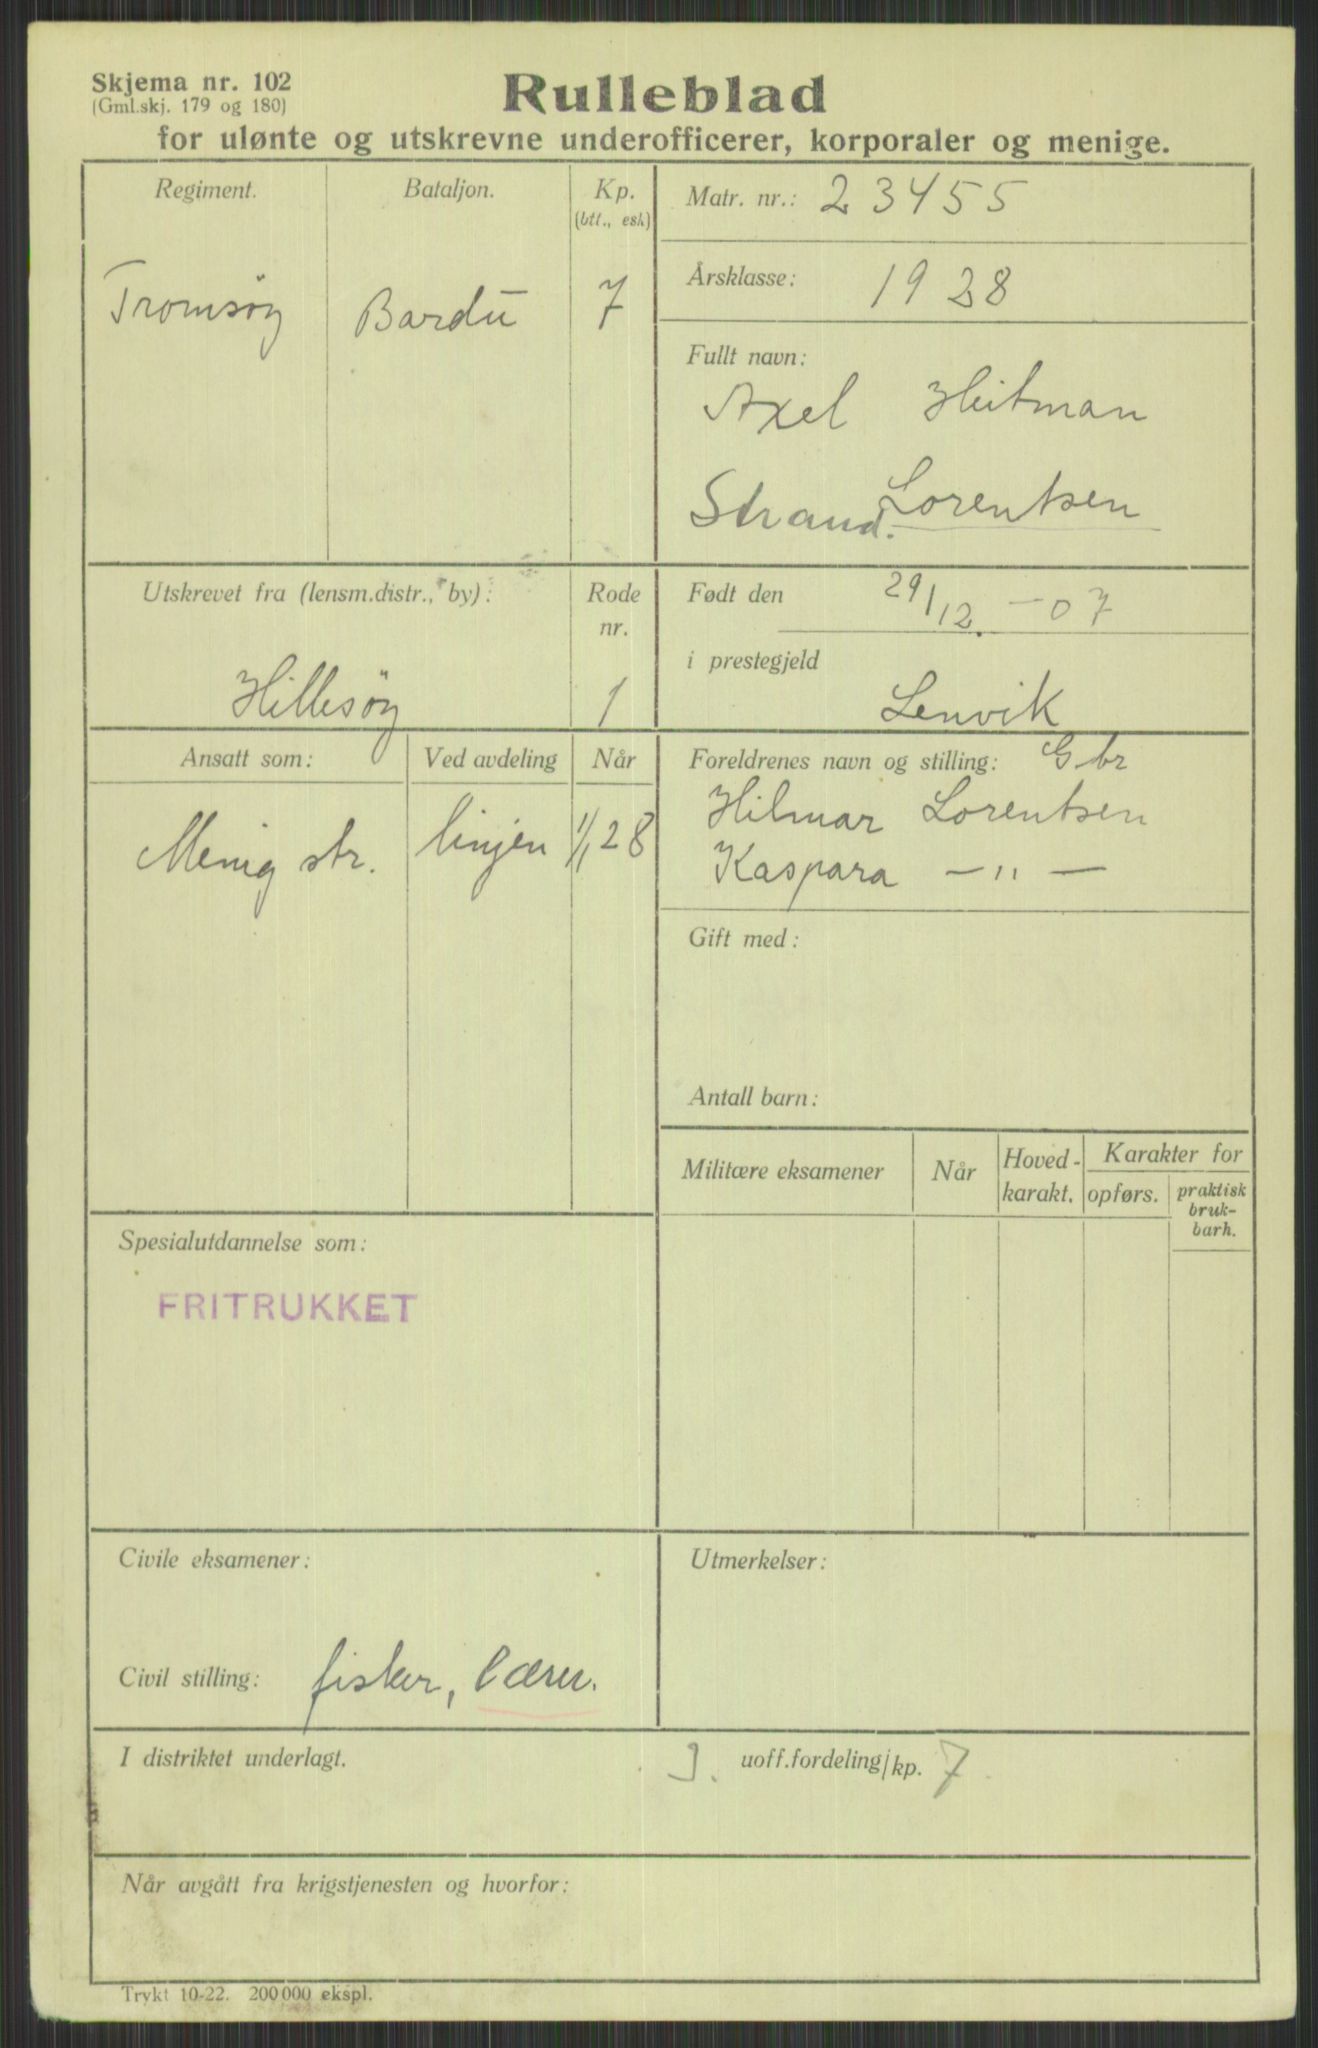 Skjema nr. 102
(Gml.skj. 179 og 180)
Rulleblad
for ulønte og utskrevne underofficerer, korporaler og menige.
Regiment.
Tromsøy
Bataljon.
Bardu
Kp.
(btl., esk)
7
Matr. nr.: 23455
Årsklasse: 1928
Fullt navn:
Axel Heitman
Strand. Lorentsen
Utskrevet fra (lensm.distr., by):
Hillesöy
Rode
nr.
1
Født den 29/12. - 07
i prestegjeld
Lenvik
Ansatt som:
Menig str.
Ved avdeling
linjen
Når
1/1 28
Foreldrenes navn og stilling: Gbr
Hilmar Lorentsen
Kaspara — " —
Gift med:
Antall barn:
Militære eksamener
Når
Hoved-
karakt.
Karakter for
opførs.
praktisk
bruk-
barh.
Spesialutdannelse som:
FRITRUKKET
Civile eksamener:
Civil stilling: fisker,
Utmerkelser:
I distriktet underlagt.
uoff.fordeling/kp. 7
Når avgått fra krigstjenesten og hvorfor:
Trykt 10-22. 200 000 ekspl.